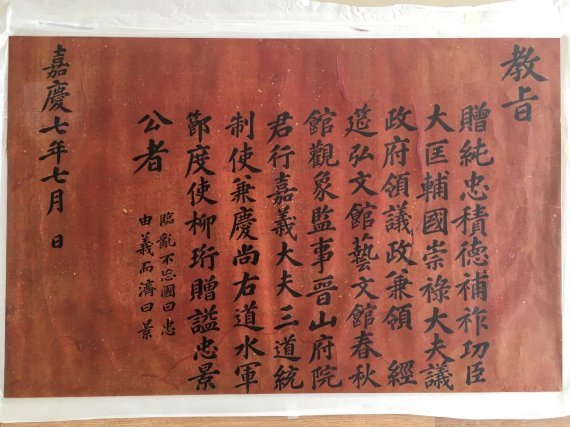 教旨
贈純忠積德補祚功臣
大匡輔國崇祿大夫議
政府領議政兼領 經
筵弘文館藝文館春秋
館觀象監事晋山府院
君行嘉義大夫三道統
制使兼慶尚右道水軍
節度使柳珩贈諡忠景
公者
臨亂不忘國曰忠
由義而濟曰景
嘉慶七年七月 日